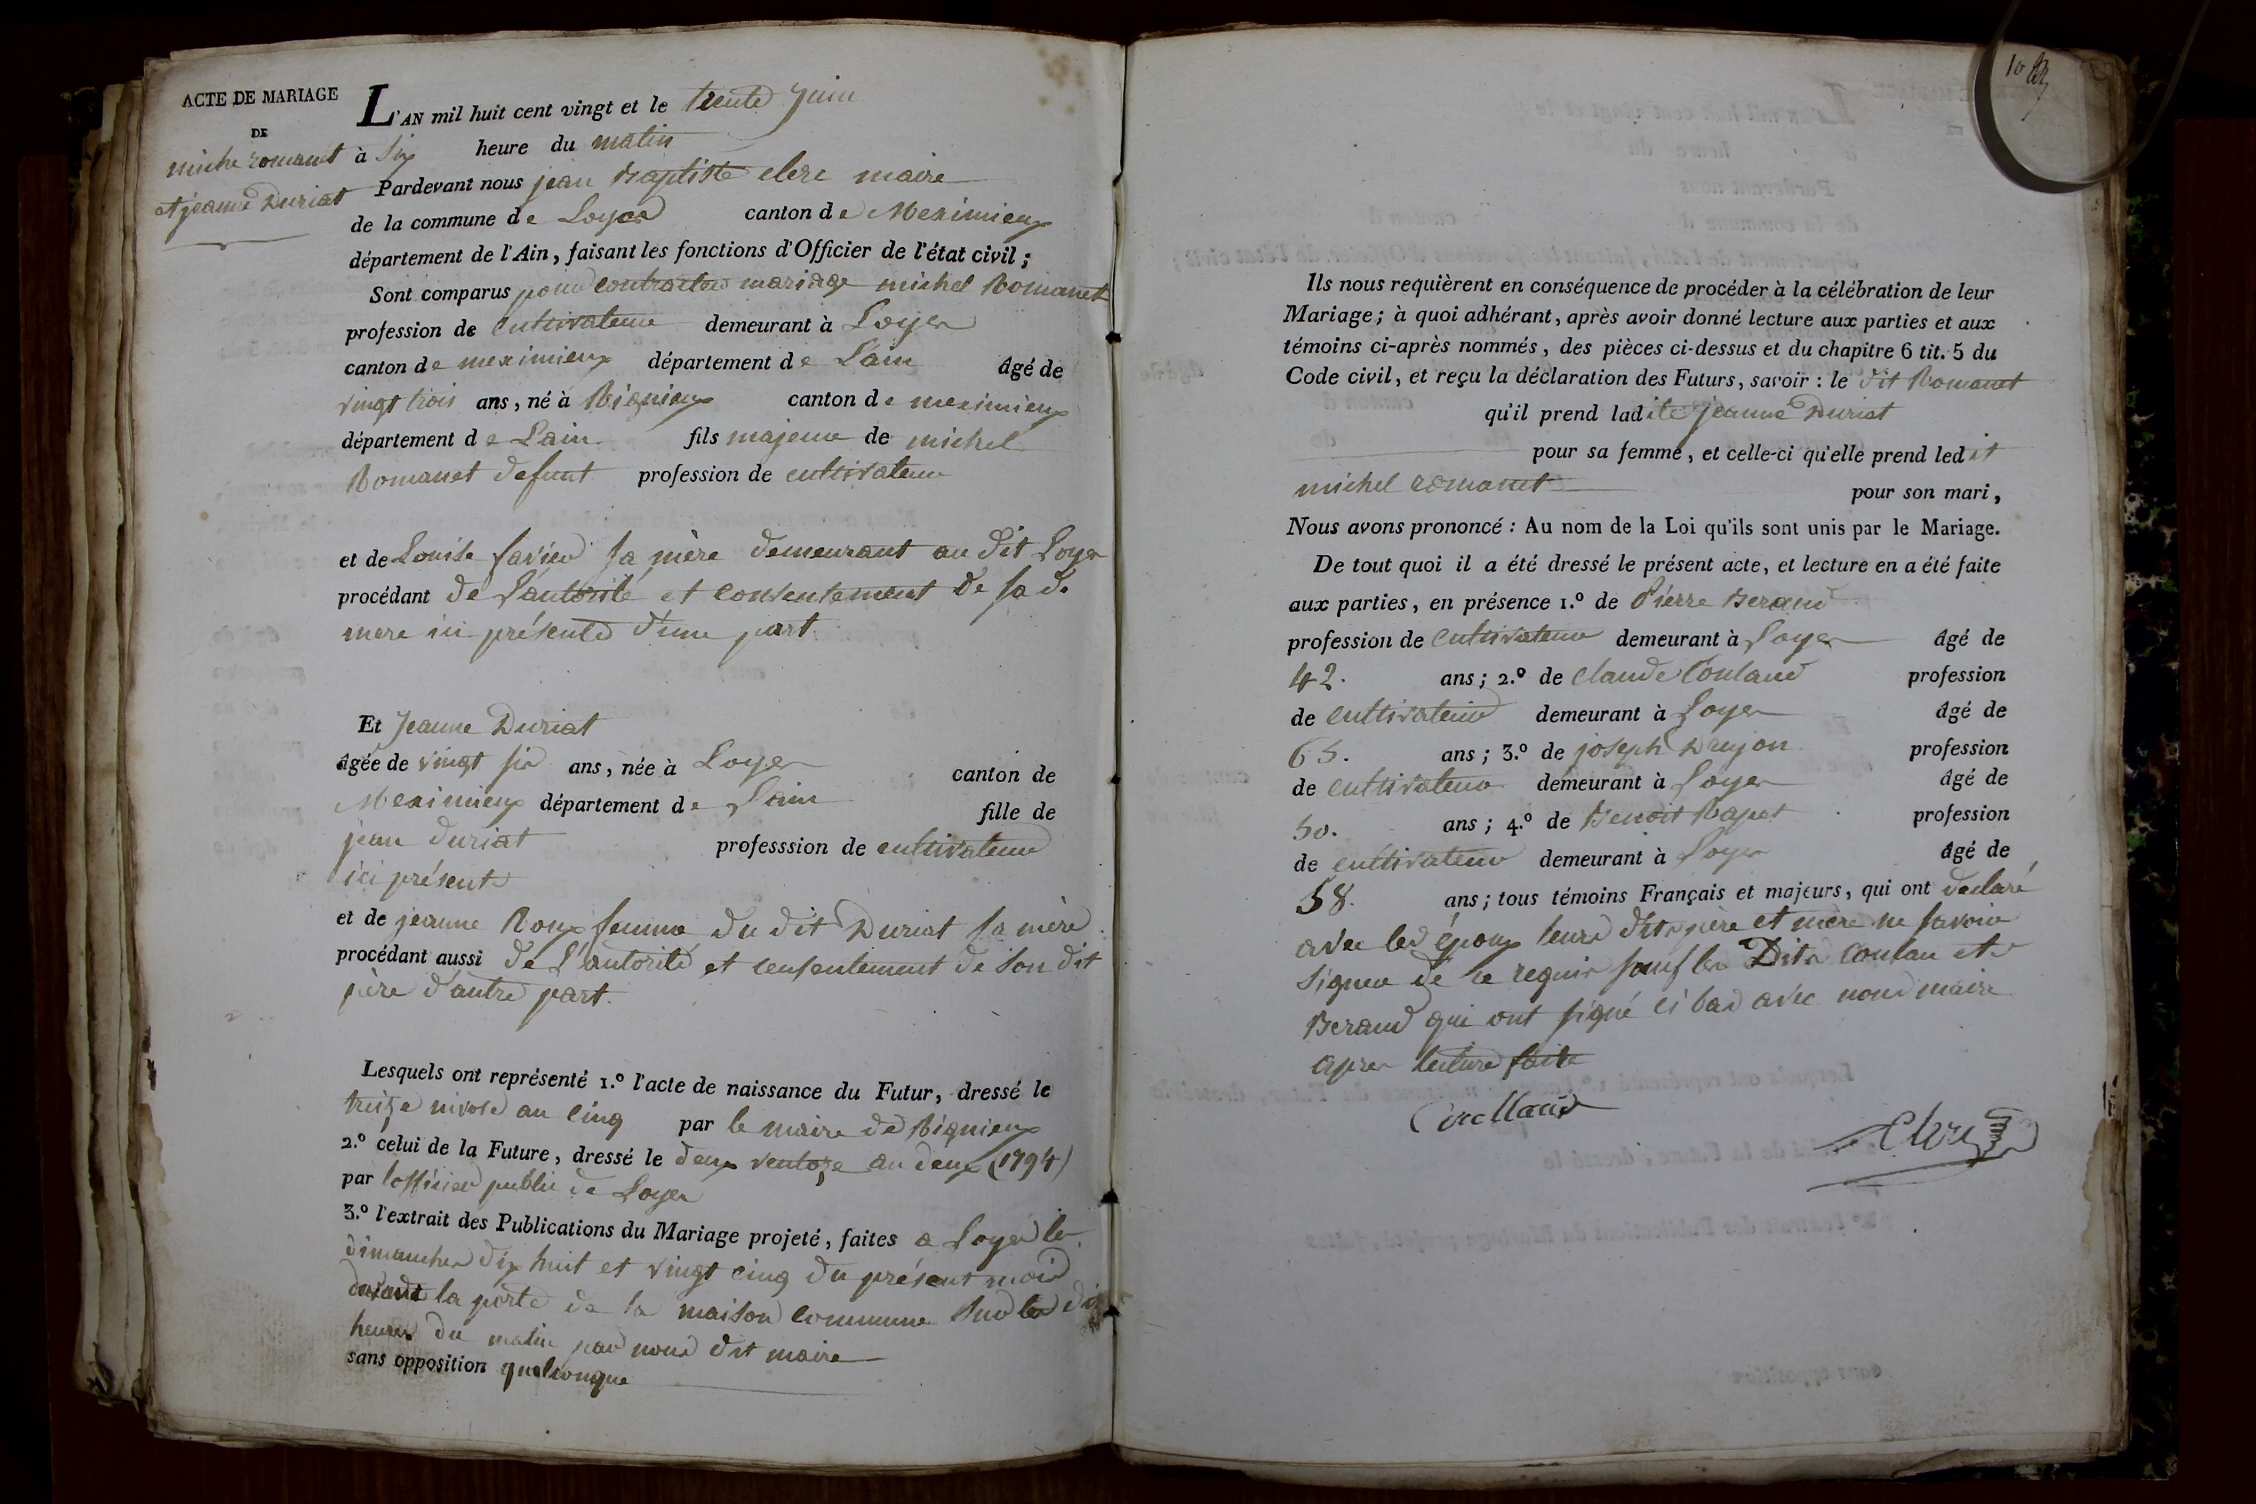 ACTE DE MARIAGE
DE
miche romanet
et jeanne Duriat
L'AN mil huit cent vingt et le trente juin
à six heure du matin
Pardevant nous jean Baptiste clerc maire
de la commune de Loyes canton de Meximieux
département de l'Ain, faisant les fonctions d'Officier de l'état civil;
Sont comparus pour contracter mariage michel Romanet
profession de cultivateur demeurant à Loyes
canton de meximieux département de L'ain âgé de
vingt trois ans, né à Rignieux canton de meximieux
département de Lain fils majeur de michel
Romanet defunt profession de cultivateur
et de Louise favier sa mère demeurant au dit Loyes
procédant de l'autorité et consentement de sa d.
mere ici présente d'une part
Et Jeanne Duriat
âgée de vingt six ans, née à Loyes canton de
Meximieux département de Lain fille de
jean duriat professsion de cultivateur
ici présent
et de jeanne Roux femme du dit Duriat sa mère
procédant aussi de l'autorité et consentement de son dit
père d'autre part.
Lesquels ont représenté 1.º l'acte de naissance du Futur, dressé le
treize nivose an cinq par le maire de Rignieux
2.º celui de la Future, dressé le deux ventoze an deux (1794)
par l'officier public de Loyes
3.º l'extrait des Publications du Mariage projeté, faites a Loyes les
dimanches dix huit et vingt cinq du présent mois
devant la porte de la maison commune sur les dix
heures du matin par nous dit maire
sans opposition quelconque
10
Ils nous requièrent en conséquence de procéder à la célébration de leur
Mariage; à quoi adhérant, après avoir donné lecture aux parties et aux
témoins ci-après nommés, des pièces ci-dessus et du chapitre 6 tit. 5 du
Code civil, et reçu la déclaration des Futurs, savoir: le dit Romanet
qu'il prend ladite jeanne Duriat
pour sa femme, et celle-ci qu'elle prend ledit
michel romanet pour son mari,
Nous avons prononcé: Au nom de la Loi qu'ils sont unis par le Mariage.
De tout quoi il a été dressé le présent acte, et lecture en a été faite
aux parties, en présence 1.º de Pierre Beraud
profession de cultivateur demeurant à Loyes âgé de
42. ans; 2.º de claude Couland profession
de cultivateur demeurant à Loyes âgé de
65. ans; 3.º de joseph Drujon profession
de cultivateur demeurant à Loyes âgé de
50. ans; 4.º de Benoit Rapet profession
de cultivateur demeurant à Loyes âgé de
58. ans; tous témoins Français et majeurs, qui ont declaré
avec les époux leurs dits père et mère ne savoir
signer de ce requis sauf les Dits Coulan et
Beraud qui ont signé ci bas avec nous maire
apres lecture faite
Clerc